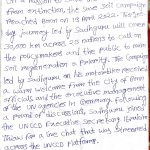 from extinction, the Save Soil campaign
reached Bonn on 13 April 2022. 100 days
day journey led by Sadhguru will cover
30,000 km across 26 nations to call on
the policymakers and the public to make
soil regeneration a Priority. The campaign
led by Sadhguru on his motorbike received
a warm welcome from the City of Bonn
officials and the executive management
of the UN agencies in Germany. Following
a round of discussions, Sadhguru joined
the UNCCD Executive Secretary Ibrahim
Thiaw for a live chat that was streamed
across the UNCCD Platforms.